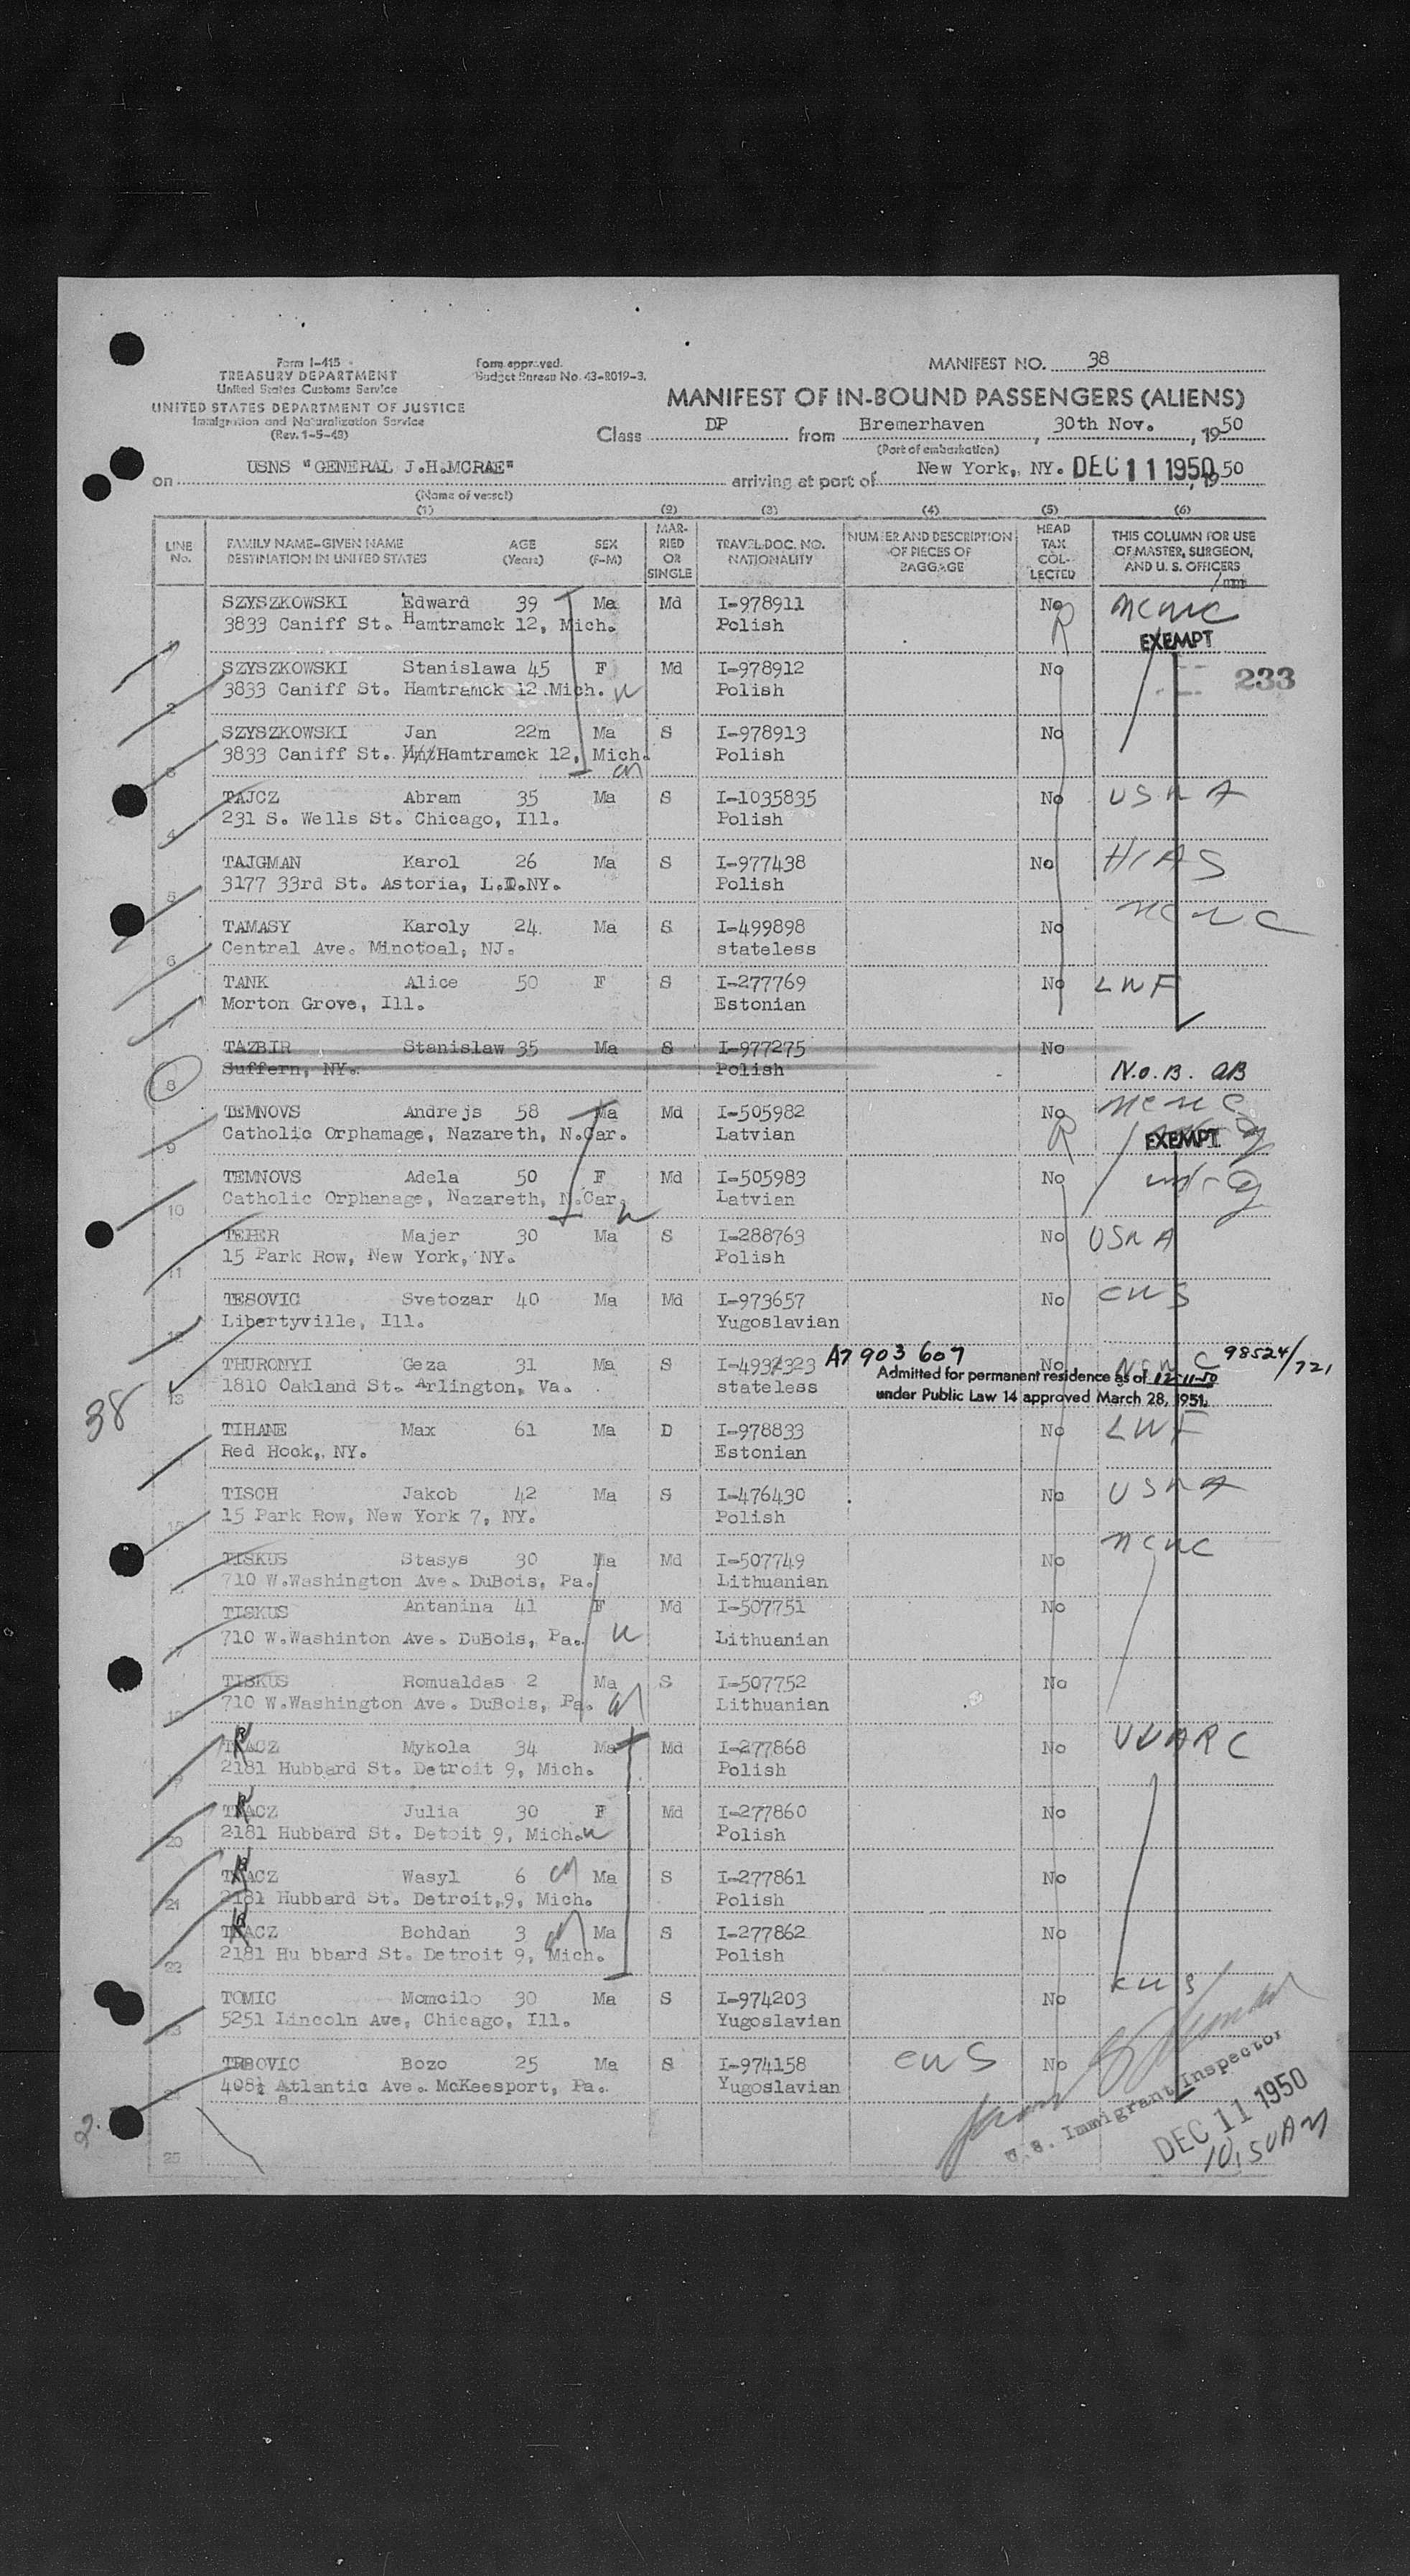 Form I-415
TREASURY DEPARTMENT
United States Customs Service
UNITED STATES DEPARTMENT OF JUSTICE
Immigration and Naturalization Service
(Rev. 1-5-48)
Form approved.
Budget Bureau No. 43-R019-3.
MANIFEST NO. 38
MANIFEST OF IN-BOUND PASSENGERS (ALIENS)
Class DP from Bremerhaven, 30th Nov., 1950
(Port of embarkation)
on USNS "GENERAL J.H.MCRAE" arriving at port of New York,, NY. DEC 11 1950, 1950
(Name of vessel)
(1) (2) (3) (4) (5) (6)
LINE No. FAMILY NAME-GIVEN NAME DESTINATION IN UNITED STATES AGE (Years) SEX (F-M) MARRIED OR SINGLE TRAVEL DOC. NO. NATIONALITY NUMBER AND DESCRIPTION OF PIECES OF BAGGAGE HEAD TAX COLLECTED THIS COLUMN FOR USE OF MASTER, SURGEON, AND U. S. OFFICERS
SZYSZKOWSKI Edward 39 Ma Md I-978911 No NCWC
3833 Caniff St. Hamtramck 12, Mich. Polish R EXEMPT
1
SZYSZKOWSKI Stanislawa 45 F Md I-978912 No 233
3833 Caniff St. Hamtramck 12 Mich. Polish
2
SZYSZKOWSKI Jan 22m Ma S I-978913 No
3833 Caniff St. Hamtramck 12, Mich. Polish
3
TAJCZ Abram 35 Ma S I-1035835 No USNA
231 S. Wells St. Chicago, Ill. Polish
4
TAJGMAN Karol 26 Ma S I-977438 No HIAS
3177 33rd St. Astoria, L.I.NY. Polish
5
TAMASY Karoly 24 Ma S I-499898 No NCWC
Central Ave. Minotoal, NJ. stateless
6
TANK Alice 50 F S I-277769 No LWF
Morton Grove, Ill. Estonian
7
TAZBIR Stanislaw 35 Ma S I-977275 No
Suffern, NY. Polish N.O.B. QB
8
TEMNOVS Andrejs 58 Ma Md I-505982 No NCWC
Catholic Orphamage, Nazareth, N.Car. Latvian R EXEMPT
9
TEMNOVS Adela 50 F Md I-505983 No
Catholic Orphanage, Nazareth, N.Car. Latvian
10
TEPER Majer 30 Ma S I-288763 No USNA
15 Park Row, New York, NY. Polish
11
TESOVIC Svetozar 40 Ma Md I-973657 No CWS
Libertyville, Ill. Yugoslavian
12
THURONYI Geza 31 Ma S I-4932323 A7 903 607 No NCWC 98524/721
1810 Oakland St. Arlington, Va. stateless Admitted for permanent residence as of 12-11-50
under Public Law 14 approved March 28, 1951.
13
38
TIHANE Max 61 Ma D I-978833 No LWF
Red Hook,, NY. Estonian
TISCH Jakob 42 Ma S I-476430 No USNA
15 Park Row, New York 7, NY. Polish
15
TISKUS Stasys 30 Ma Md I-507749 No NCWC
710 W.Washington Ave. DuBois, Pa. Lithuanian
TISKUS Antanina 41 F Md I-507751 No
710 W.Washinton Ave. DuBois, Pa. Lithuanian
TISKUS Romualdas 2 Ma S I-507752 No
710 W.Washington Ave. DuBois, Pa. Lithuanian
18
TKACZ Mykola 34 Ma Md I-277868 No UUARC
2181 Hubbard St. Detroit 9, Mich. Polish
TKACZ Julia 30 F Md I-277860 No
2181 Hubbard St. Detoit 9, Mich. Polish
20
TKACZ Wasyl 6 Ma S I-277861 No
2181 Hubbard St. Detroit,9, Mich. Polish
21
TKACZ Bohdan 3 Ma S I-277862 No
2181 Hu bbard St. Detroit 9, Mich. Polish
22
TOMIC Momcilo 30 Ma S I-974203 No CWS
5251 Lincoln Ave, Chicago, Ill. Yugoslavian
23
TRBOVIC Bozo 25 Ma S I-974158 CWS No
408½ Atlantic Ave. McKeesport, Pa. Yugoslavian
24
25
U.S. Immigrant Inspector
DEC 11 1950
10,50AM